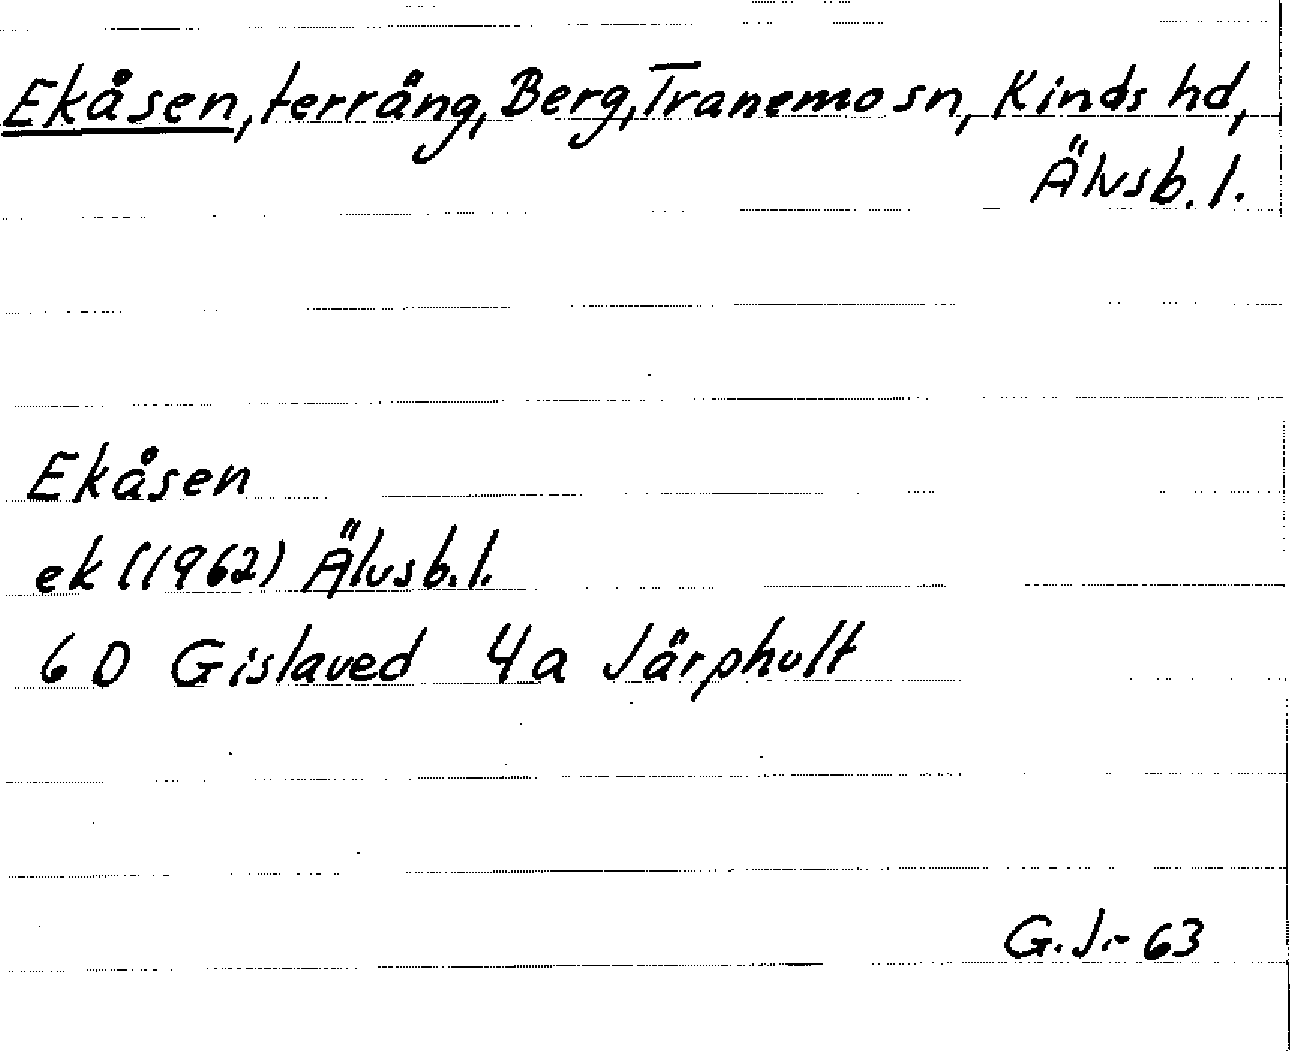 Ekåsen, terräng, Berg, Tranemo sn, Kinds hd,
Älvsb. l.
Ekåsen
ek (1962) Älvsb. l.
6 D Gislaved 4a Järphult
G. J.- 63